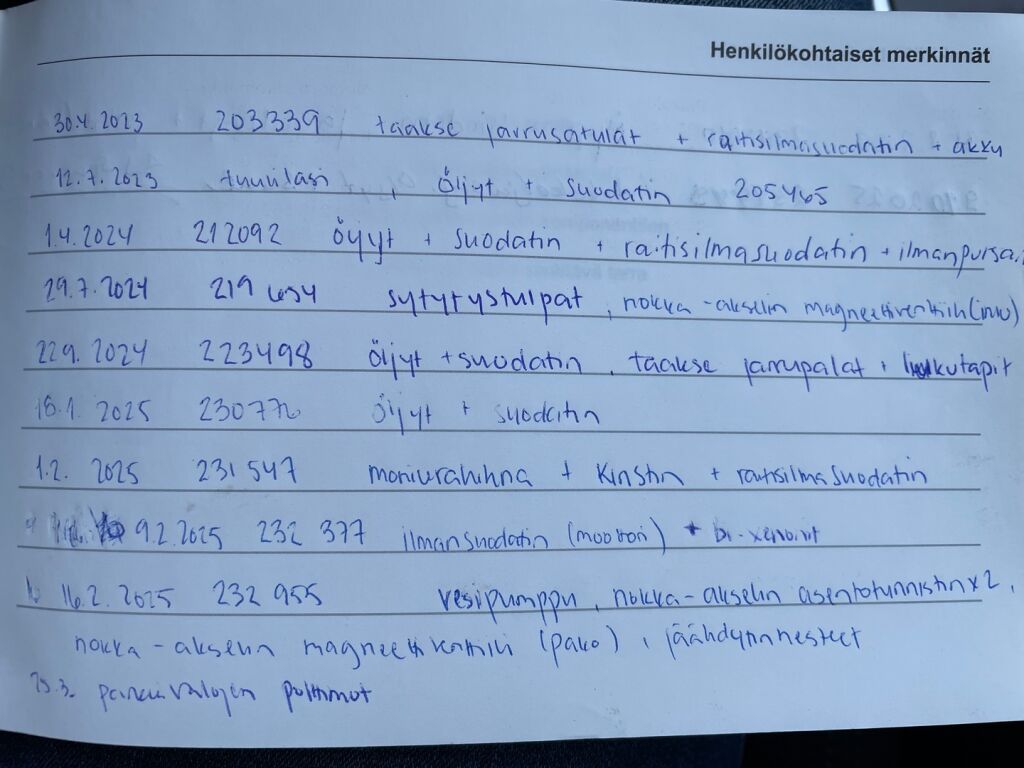 Henkilökohtaiset merkinnät
30.4.2023 203339 taakse jarrusatulat + raitisilmasuodatin + akku
12.7.2023 tuulilasi, öljyt + suodatin 205465
1.4.2024 212092 öljyt + suodatin + raitisilmasuodatin + ilmanpuhd
29.7.2024 219 654 sytytystulpat, nokka-akselin magneettiventtiili (imu)
22.9.2024 223498 öljyt + suodatin, taakse jarrupalat + liukutapit
18.1.2025 230770 öljyt + suodatin
1.2. 2025 231 547 moniurahihna + kiristin + raitisilmasuodatin
9.2.2025 232 377 ilmansuodatin (moottori) + bi-xenonit
16.2.2025 232 955 vesipumppu, nokka-akselin asentotunnistin x2,
nokka-akselin magneettiventtiili (pako), jäähdynnesteet
25.3. parkkivalojen polttimot